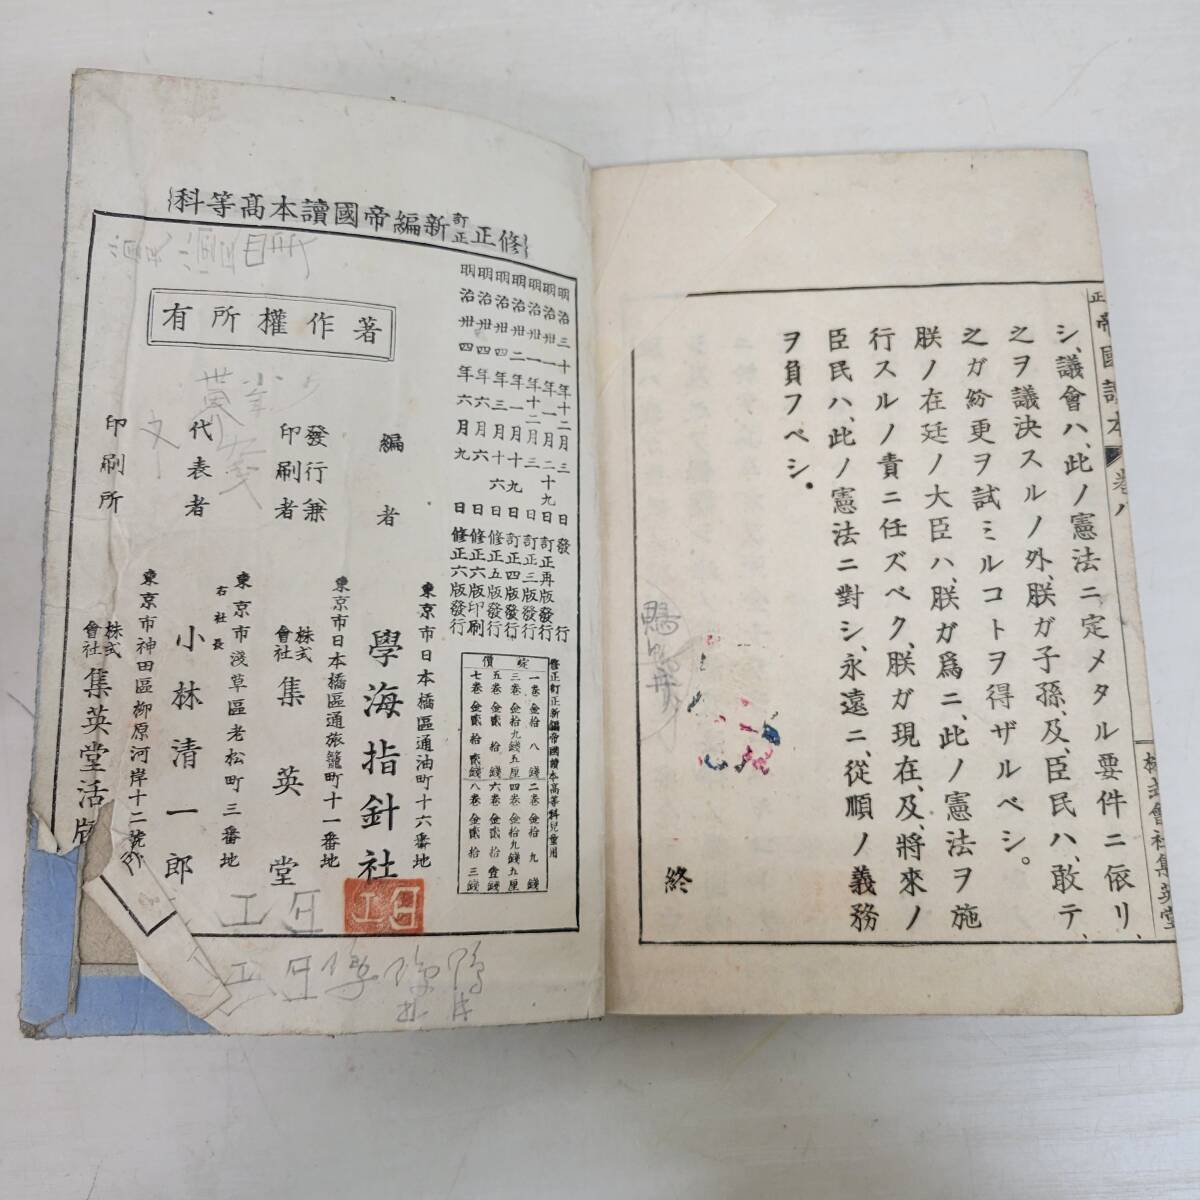 正帝國讀本
卷八
株式會社集英堂
シ、議會ハ、此ノ憲法ニ定メタル要件ニ依リ、
之ヲ議決スルノ外、朕ガ子孫、及、臣民ハ、敢テ、
之ガ紛更ヲ試ミルコトヲ得ザルベシ。
朕ノ在廷ノ大臣ハ、朕ガ爲ニ、此ノ憲法ヲ施
行スルノ責ニ任ズベク、朕ガ現在、及、將來ノ
臣民ハ、此ノ憲法ニ對シ、永遠ニ、從順ノ義務
ヲ負フベシ。
終
修正訂正新編帝國讀本高等科
明治三十年十二月三日發行
明治卅一年一月二十九日訂正再版發行
明治卅一年十二月三日訂正三版發行
明治卅二年一月十九日訂正四版發行
明治卅四年三月十六日修正五版發行
明治卅四年六月六日修正六版印刷
明治卅四年六月九日修正六版發行
修正訂正新編帝國讀本高等科兒童用
定價
一卷金拾八錢
二卷金拾九錢
三卷金拾九錢五厘
四卷金拾九錢五厘
五卷金貳拾錢
六卷金貳拾壹錢
七卷金貳拾貳錢
八卷金貳拾三錢
著作權所有
編者
東京市日本橋區通油町十六番地
學海指針社
發行兼印刷者
東京市日本橋區通旅籠町十一番地
株式會社集英堂
代表者
東京市淺草區老松町三番地
右社長
小林清一郎
印刷所
東京市神田區柳原河岸十二號
株式會社集英堂活版